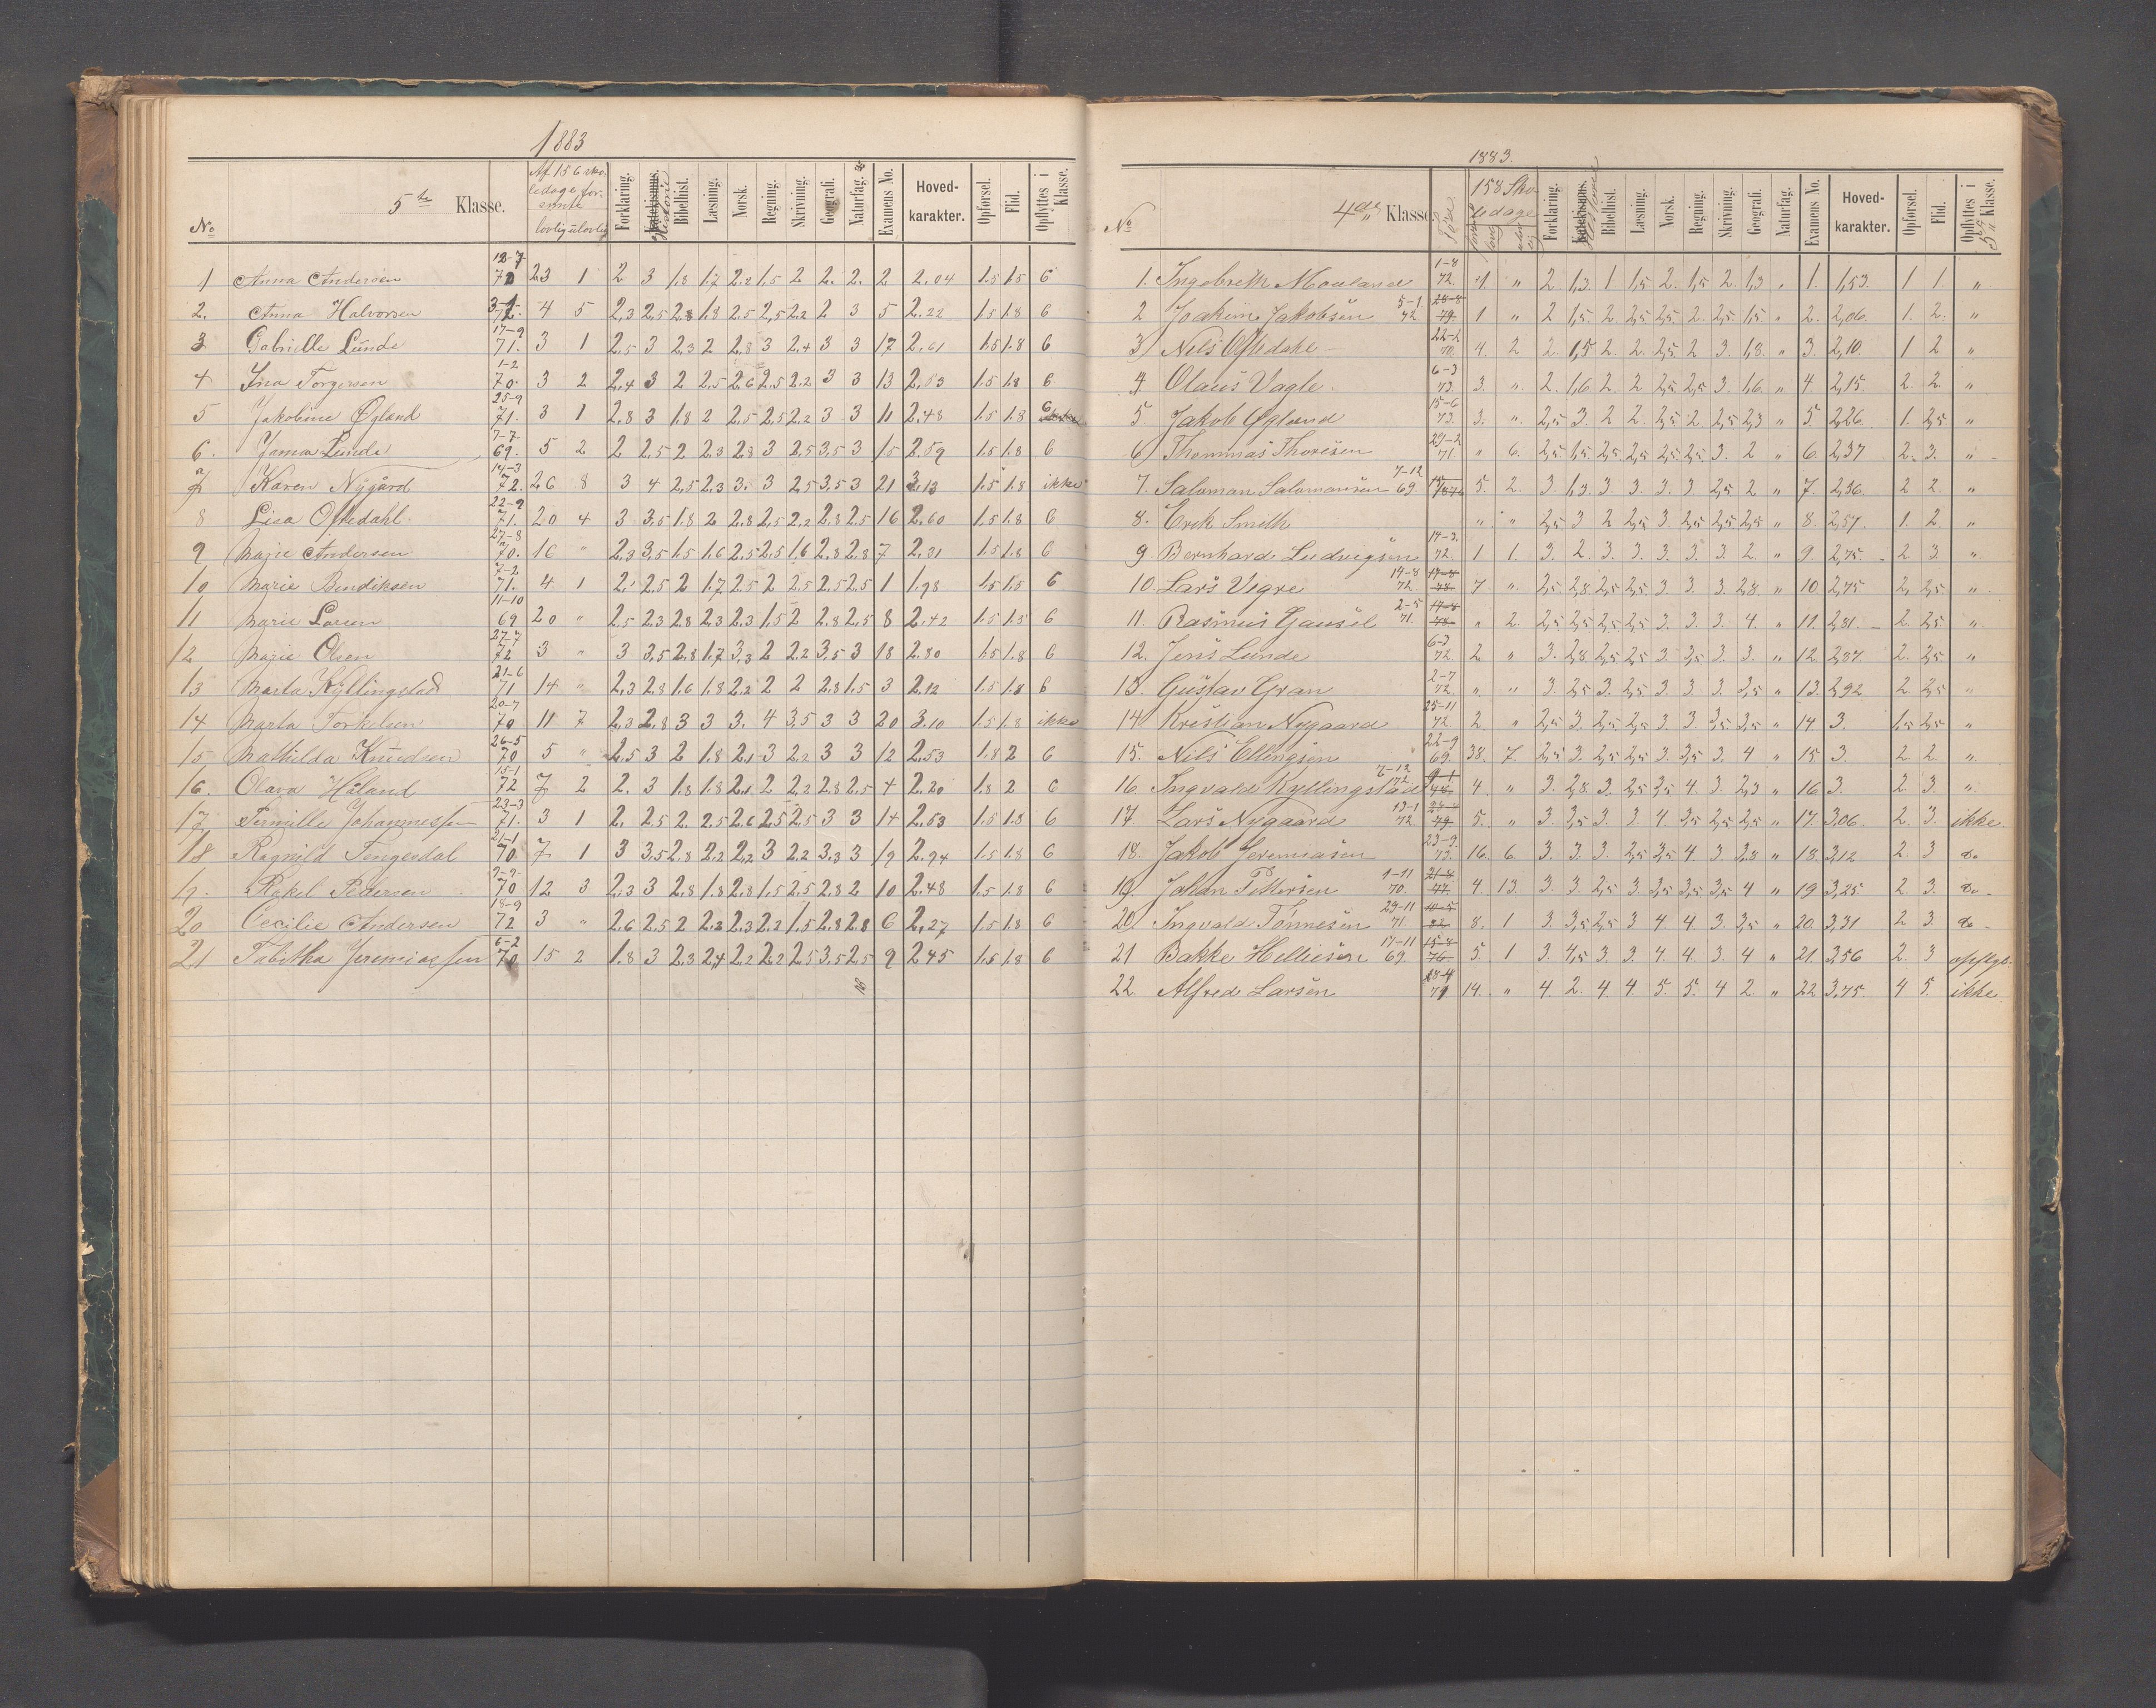 1883
No 5te Klasse. Af 156 sko-
ledage for-
sømte
lovlig ulovlig Forklaring. Katekismus. Historie Bibelhist. Læsning. Norsk. Regning. Skrivning. Geografi. Naturfag. Examens No. Hoved-karakter. Opførsel. Flid. Opflyttes i Klasse.
1 Anna Andersen 12-7 70 23 1 2 3 1.8 1.7 2.2 1.5 2 2. 2. 2 2.04 1.5 1.5 6
2. Anna Halvorsen 72. 4 5 2,3 2,5 2.8 1.8 2.5 2,5 2.2 2 3 5 2.22 1.5 1.8 6
3 Gabrielle Lunde 17-9 71. 3 1 2.5 3 2,3 2 2.8 3 2.4 3 3 17 2.61 1.5 1.8 6
4 Ina Torgersen 1-2 70. 3 2 2,4 3 2 2.5 2.6 2.5 2.2 3 3 13 1.5 1.8 6
5 Jakobine Øgland 25-9 71. 3 1 2.8 3 1.8 2 2.5 2.5 2.2 3 3 11 2.48 1.5 1.8 6
6. Lunde 7-7 69. 5 2 2 2.5 2 2.3 2.8 3 2.5 3.5 3 15 2.59 1.5 1.8 6
7 Karen Nygård 14-3 72. 26 8 3 4 2.5 2.3 3. 3 2.5 3.5 3 21 3.13 1.5 1.8 ikke
8 Lisa Oftedahl 22-9 71. 20 4 3 3.5 1.8 2 2.8 2.5 2.2 2.8 2.5 16 2.60 1.5 1.8 6
9 Marie Andersen 27-8 70. 10 " 2.3 3.5 1.5 1.6 2.5 2.5 1.6 2.8 2.8 7 2.31 1.5 1.8 6
10 Marie Bendiksen 7-2 71. 4 1 2. 2.5 2 1.7 2.5 2 2.5 2.5 2.5 1 1.98 1.5 1.5 6
11 Marie Larsen 11-10 69 20 " 2.5 2.3 2.8 2.3 2.3 1.5 2 2.8 2.5 8 2.42 1.5 1.5 6
12 Marie Olsen 27-7 72 3 " 3 3.5 2.8 1.7 3,3 2 2.2 3.5 3 18 2.80 1.5 1.8 6
13 Marta Kyllingstad 21-6 71 14 " 2,3 2.8 1.6 1.8 2.2 2 2 2.8 1.5 3 2.12 1.5 1.8 6
14 Marta Torkelsen 20-7 70 11 7 2,3 2.8 3 3 3. 4 3.5 3 3 20 3.10 1.5 1.8 ikke
15 Mathilda Knudsen 26-5 70 5 " 2.5 3 2 1.8 2.1 3 2.2 3 3 12 2.53 1.8 2 6
16. Olava Håland 15-1 72 7 2 2. 3 1.8 1.8 2.1 2 2.2 2.8 2.5 4 2.20 1.8 2 6
17 Pernille Johannessen 23-3 71. 3 1 2. 2.5 2. 2.5 2.6 2.5 2.5 3 3 14 2.53 1.5 1.8 6
18 Ragnild Tengesdal 21-1 70 7 1 3 3.5 2.8 2.2 2,2 3 2.2 3.3 3 19 2.94 1.5 1.8 6
19. Rakel Pedersen 9-9. 70 12 3 2.3 3 2.8 1.8 2.8 1.5 2.5 2.8 2 10 2.48 1.5 1.8 6
20 Cecilie Andersen 18-9 72 3 " 2.6 2.5 2 2.2 2.3 2.2 1.5 2.8 2.8 6 2,27 1.5 1.8 6
21 Tabitha Jeremiassen 6-2 70 15 2 1.8 3 2.3 2,4 2.2 2.2 2.5 3.5 2.5 9 2.45 1.5 1.8 6
1883.
No 4de Klasse. Født 158 Sko-
ledage Forklaring. Katekismus. Historie Bibelhist. Læsning. Norsk. Regning. Skrivning. Geografi. Naturfag. Examens No. Hoved-karakter. Opførsel. Flid. Opflyttes i 5te Klasse.
1. Ingebreth Mauland 1-8 72. 1 " 2. 1,3. 1 1,5 2. 1,5 2. 1,3 " 1. 1,53. 1 1. "
2 Joakim Jakobsen 5-1 72. 1 " 2 1,5 2 2,5 2,5 2. 2,5. 1,5 " 2. 2,06. 1. 2. "
3 Nils Oftedahl 22-2 70. 4. 2 2. 1,5 2. 2. 2,5. 2 3. 1,8. " 3. 2,10. 1 2 "
4 Olaus Vagle. 6-3 73. 3. ". 2. 1,6. 2 2 2,5 2,5 3. 1,6. " 4. 2,15. 2. 2. "
5. Jakob Øgland 15-6 73. 3. ". 2,5 3. 2 2. 2,5 2. 2,5 2,3 " 5. 2,26. 1. 2,5 "
6 Thommas Thorisen 29-2 71. " 6. 2,5 1,5 2,5. 2,5 2,5. 2,5 3. 2 " 6. 2,37 2. 3. "
7. Saloman Salomansen 7-12 69. 5. 2. 3. 1,3. 3. 3. 3. 3. 2,5 2 " 7. 2,36. 2 2. "
8. Erik Smith " " 2,5 3 2 2,5 3. 2,5 2,5 2,5 " 8. 2,57. 1. 2. "
9 Bernhard Ludvigsen 14-3. 72. 1 1. 3. 2. 3. 3. 3. 3. 3. 2. " 9. 2,75 2 3. "
10. Lars Vigre 14-8 72 7 ". 2,5 2,8. 2,5 2,5 3. 3. 3. 2,8. " 10. 2,75. 2, 2,5. "
11. Rasmus Gausel 2-5 71. " 2. 2,5 2,5 2,5 2,5 3. 3. 3. 4. " 11. 2,81. 2. 2,5 "
12. Jens Lunde 6-3 72. 2 " 3. 2,8. 2,5 2,5 3. 3,5 3. 3. " 12. 2,87. 2. 2,5 "
13. Gustav Gran 2-7 72. " " 3. 2,5 3. 2,5 3. 3. 3. 3,5 " 13. 2,92 2. 2,5 "
14. Kristian Nygaard 25-11 72. 2. " 2,5 3. 2,5 2,5 3. 3. 3,5 2,5 " 14 3. 1,5 2,5 "
15. Nils Ellingsen 22-9 69. 38. 7. 2,5 3. 2,5 2,5 3. 3,5 3. 4 " 15. 3. 2. 2. "
16. Ingvald Kyllingstad 7-12 72. 4. " 3. 2,8. 3. 2,5 3,5 4. 3. 2,3 " 16 3. 2 3. "
17. Lars Nygaard 13-1 72. 5. " 3. 3,5 3. 3. 4. 3,5 2,5 2,5 " 17. 3,06. 2. 3. ikke.
18. Jakob Jeremiasen 23-9. 73. 16. 6. 3. 3. 3. 2,5 3,5 4. 3. 3,8 " 18. 3,12 2. 3 do
19. Johan Pettersen 1-11 70. 4. 13. 3. 3. 2,5 3. 3,5 3,5 3,5 4 " 19 3,25. 2. 3. do
20. Ingvald Tønnesen 29-11 71. 8. 1 3. 3,5 2,5 3 4. 4. 3. 3,5 " 20. 3,31 2 3. do
21 Bakke Helliesen 17-11 69. 5. 1 3. 4,5 3. 3. 4. 4. 3. 4 " 21. 3,56 2. 3 opflyt.
22. Alfred Larsen 71 14. " 4. 2. 4 4. 5. 5. 4 2. " 22 3,75. 4 5. ikke